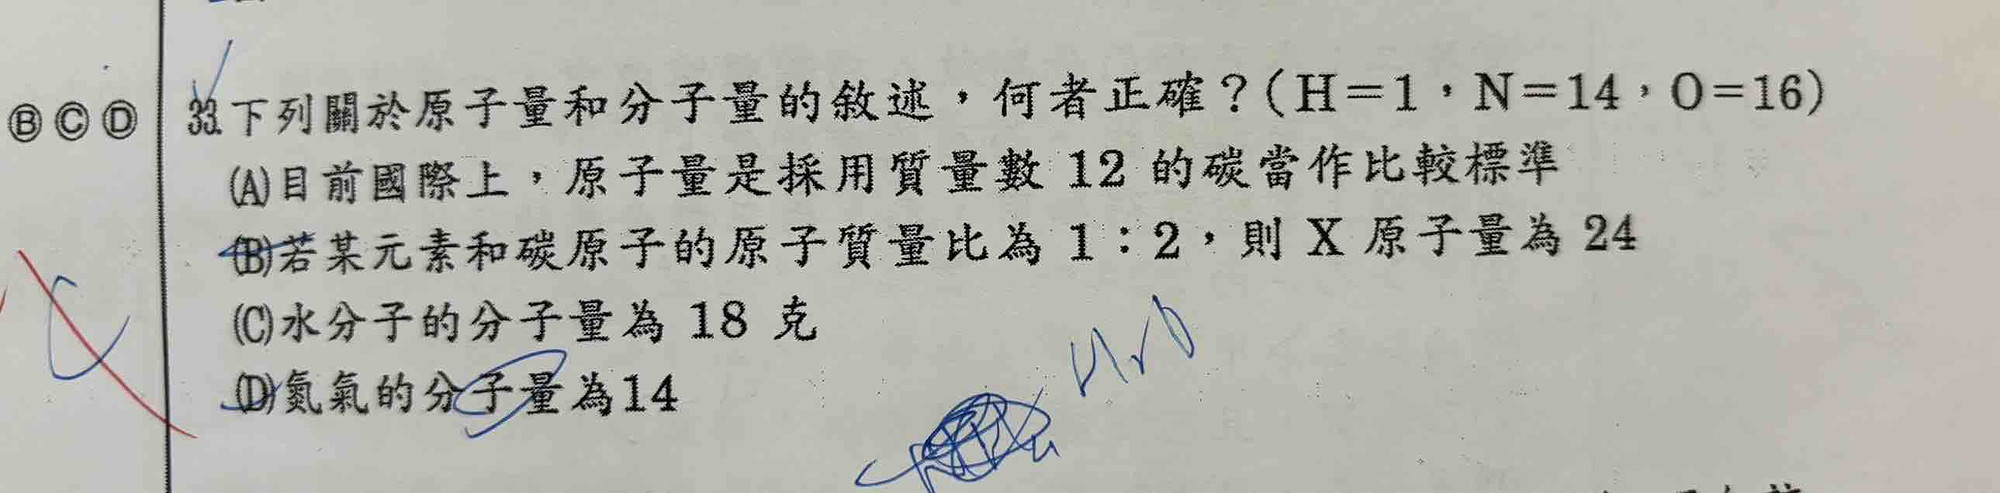 ⒷⒸⒹ 33.下列關於原子量和分子量的敘述，何者正確？(H＝1，N＝14，O＝16)
(A)目前國際上，原子量是採用質量數 12 的碳當作比較標準
(B)若某元素和碳原子的原子質量比為 1：2，則 X 原子量為 24
(C)水分子的分子量為 18 克
(D)氮氣的分子量為14
C